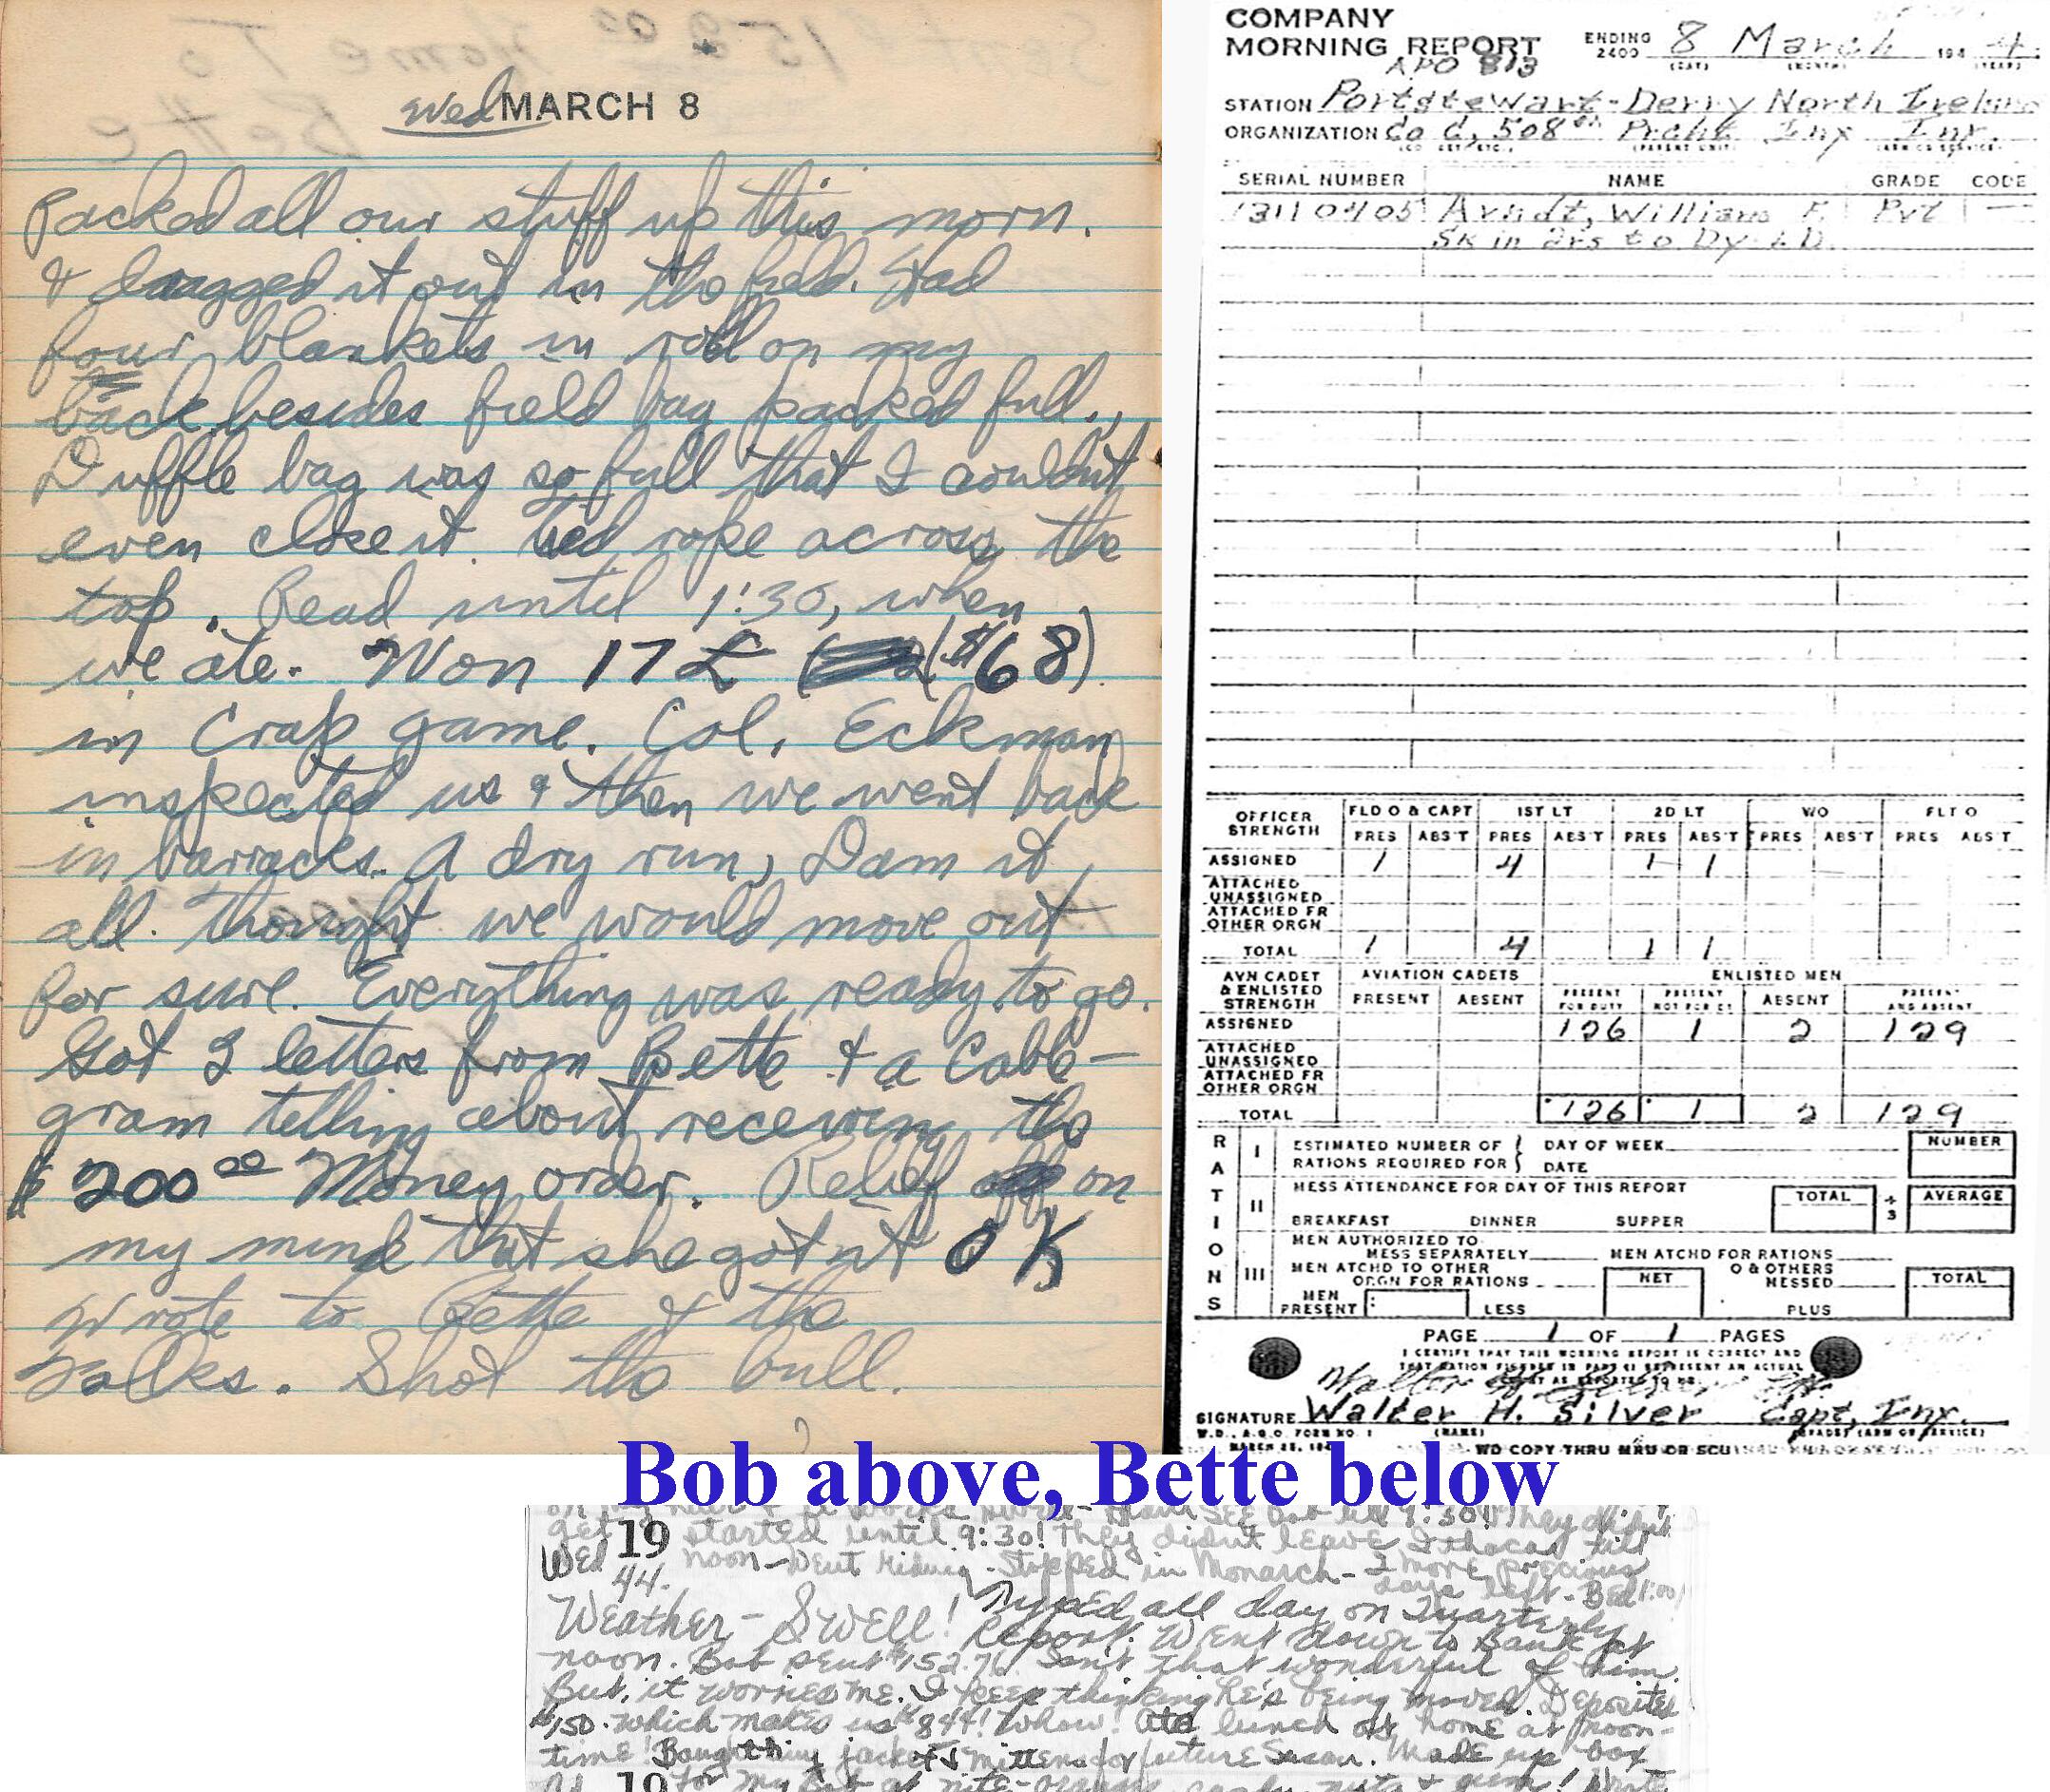 Wed MARCH 8
Packed all our stuff up this morn.
& dragged it out in the field. Had
four blankets in roll on my
back besides field bag packed full.
Duffle bag was so full that I couldnt
even close it. tied rope across the
top. Read until 1:30, when
we ate. Won 17 £ ($68)
in Crap game. Col. Eckman
inspected us & then we went back
in barracks. A dry run, Dam it
all. thought we would move out
for sure. Everything was ready to go.
Got 3 letters from Bette & a Cable-
gram telling about receiving the
$200.00 Money order. Relief on
my mind that she got it OK
Wrote to Bette & the
folks. Shot the bull.
COMPANY
MORNING REPORT ENDING 2400 8 March 194 4
APO 813
(DAY) (MONTH) (YEAR)
STATION Portstewart-Derry North Ireland
ORGANIZATION Co C, 508th Prcht Inf Inf.
SERIAL NUMBER NAME GRADE CODE
13110405 Arndt, William F. Pvt —
Sk in qrs to Dy.
OFFICER STRENGTH FLD O & CAPT 1ST LT 2D LT WO FLT O
PRES ABS'T PRES ABS'T PRES ABS'T PRES ABS'T PRES ABS'T
ASSIGNED 1 4 1 1
ATTACHED UNASSIGNED
ATTACHED FR OTHER ORGN
TOTAL 1 4 1 1
AVN CADET & ENLISTED STRENGTH AVIATION CADETS ENLISTED MEN
PRESENT ABSENT PRESENT FOR DUTY PRESENT NOT FOR DY ABSENT PRESENT AND ABSENT
ASSIGNED 126 1 2 129
ATTACHED UNASSIGNED
ATTACHED FR OTHER ORGN
TOTAL 126 1 2 129
RATIONS
I ESTIMATED NUMBER OF RATIONS REQUIRED FOR DAY OF WEEK DATE NUMBER
II MESS ATTENDANCE FOR DAY OF THIS REPORT TOTAL ÷ 3 AVERAGE
BREAKFAST DINNER SUPPER
III MEN AUTHORIZED TO MESS SEPARATELY MEN ATCHD FOR RATIONS
MEN ATCHD TO OTHER ORGN FOR RATIONS NET O & OTHERS MESSED TOTAL
MEN PRESENT LESS PLUS
PAGE 1 OF 1 PAGES
I CERTIFY THAT THIS MORNING REPORT IS CORRECT AND
SIGNATURE Walter H. Silver Capt, Inf.
W.D., A.G.O. FORM NO. 1 (NAME)
WD COPY THRU MRU OR SCU
Bob above, Bette below
get started until 9:30! They didn't leave Ithaca till
Wed 19 noon - Went riding. Stopped in Monarch - 2 more precious
44. days left - Bed 1:00!
Weather - Swell! Typed all day on Quarterly
Report. Went down to Bank at
noon. Bob sent $152.76. Isn't that wonderful of him.
But, it worries me. I keep thinking he's being moved. Deposited
$150. which makes us $844! Whow! Ate lunch at home at noon-
time! Bought tiny jacket & mittens for future Susan. Made up box
19 for my Bob at nite - candy, nuts & gum!